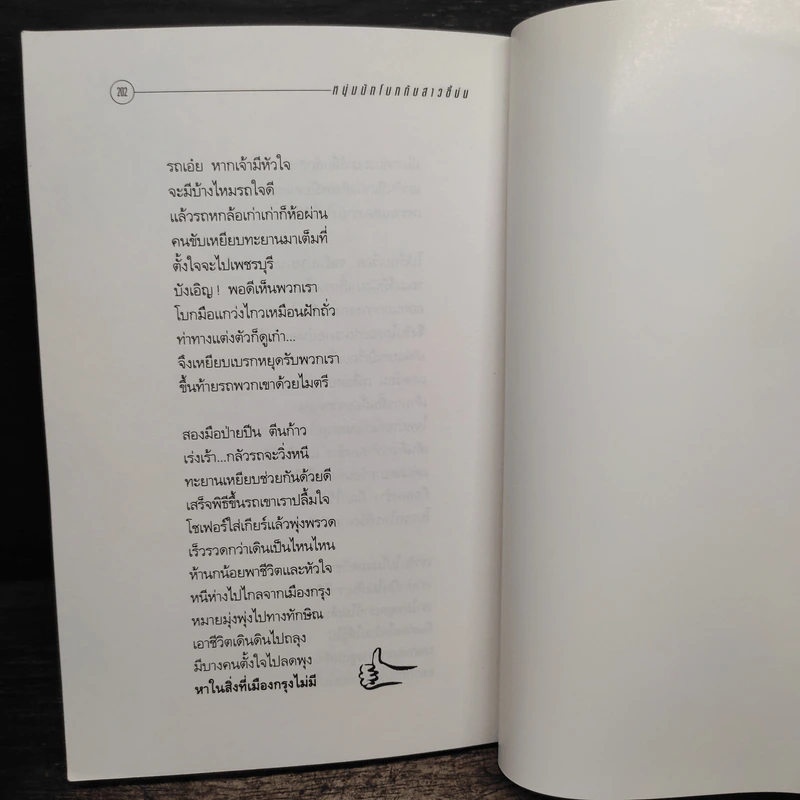 202
หนุ่มนักโบกกับสาวขี้บ่น
รถเอ๋ย หากเจ้ามีหัวใจ
จะมีบ้างไหมรถใจดี
แล้วรถหกล้อเก่าเก่าก็ห้อผ่าน
คนขับเหยียบทะยานมาเต็มที่
ตั้งใจจะไปเพชรบุรี
บังเอิญ! พอดีเห็นพวกเรา
โบกมือแกว่งไกวเหมือนฝักถั่ว
ท่าทางแต่งตัวก็ดูเก๋า...
จึงเหยียบเบรกหยุดรับพวกเรา
ขึ้นท้ายรถพวกเขาด้วยไมตรี
สองมือป่ายปีน ตีนก้าว
เร่งเร้า...กลัวรถจะวิ่งหนี
ทะยานเหยียบช่วยกันด้วยดี
เสร็จพิธีขึ้นรถเขาเราปลื้มใจ
โชเฟอร์ใส่เกียร์แล้วพุ่งพรวด
เร็วรวดกว่าเดินเป็นไหนไหน
ห้านกน้อยพาชีวิตและหัวใจ
หนีห่างไปไกลจากเมืองกรุง
หมายมุ่งพุ่งไปทางทักษิณ
เอาชีวิตเดินดินไปถลุง
มีบางคนตั้งใจไปลดพุง
หาในสิ่งที่เมืองกรุงไม่มี